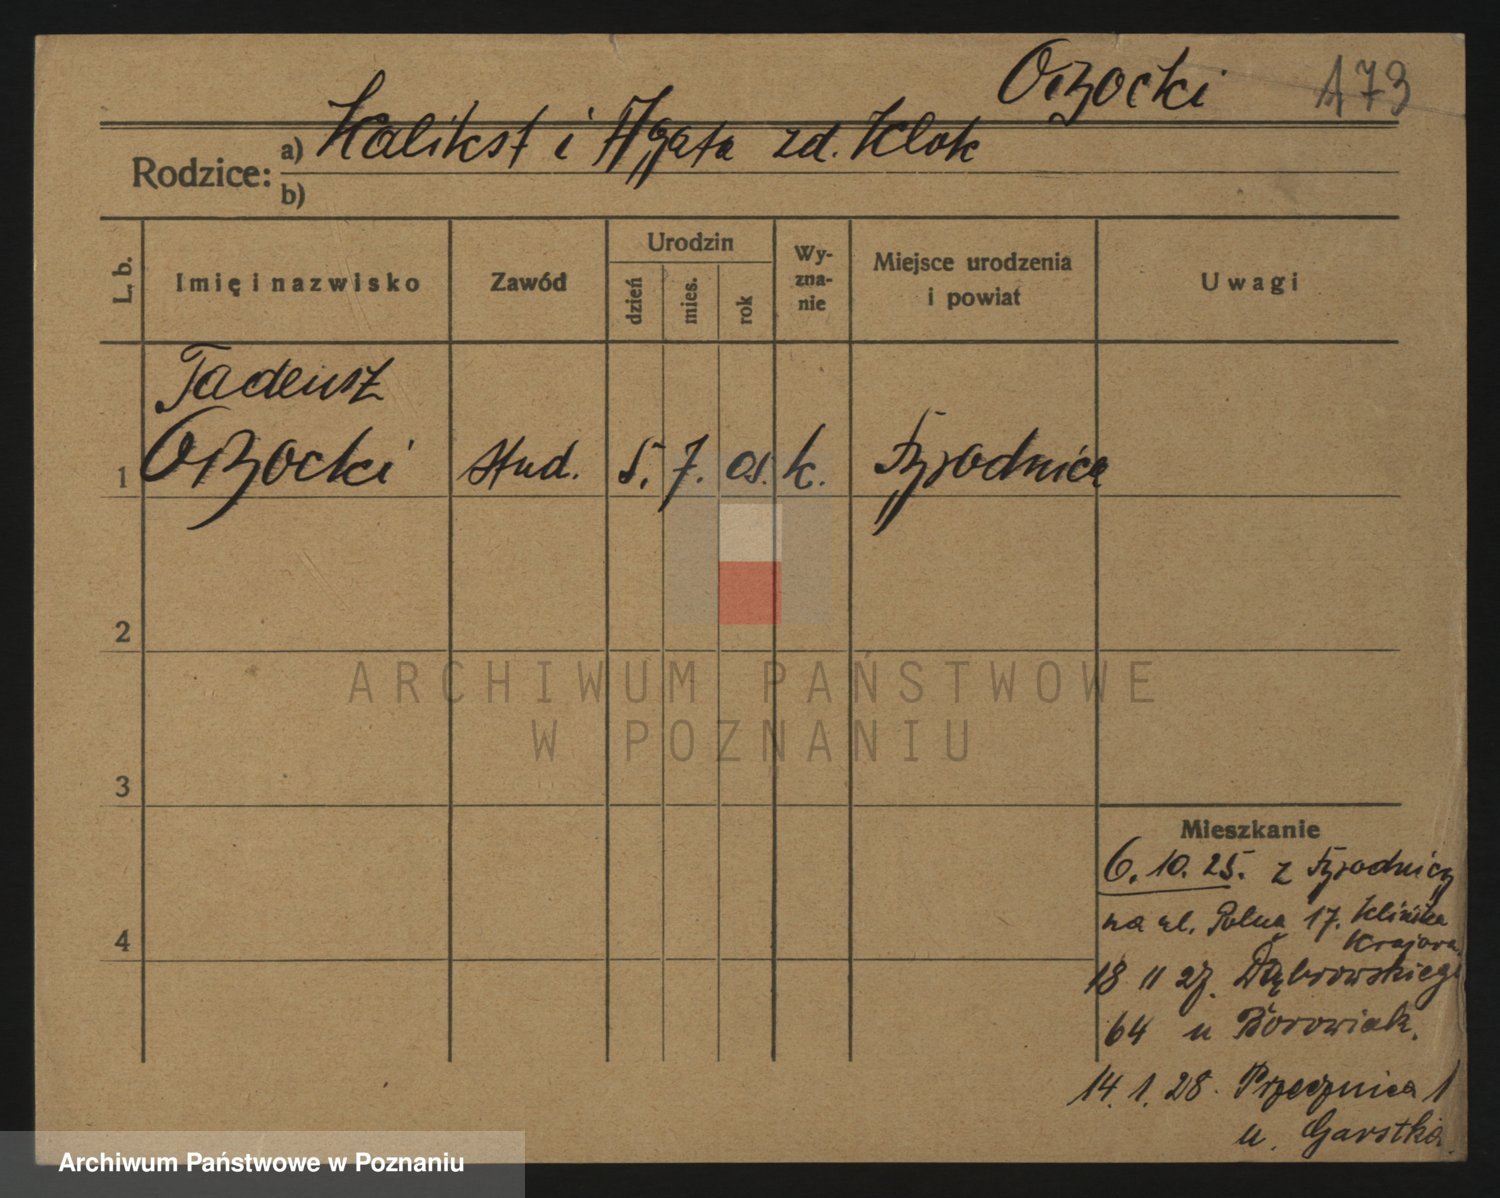 Orzocki 173
Rodzice: a) Kalikst i Agata zd. Klok
b)
L. b. Imię i nazwisko Zawód Urodzin dzień mies. rok Wyznanie Miejsce urodzenia i powiat Uwagi
Tadeusz
1 Orzocki stud. 5. 7. 05. k.
2
3
4
Mieszkanie
6. 10. 25. z
na ul. Polna 17. Klinika
Krajowa
18 11 27. Dąbrowskiego
64 u Borowiak.
14. 1. 28. Przecznica 1
u. Garstka
ARCHIWUM PAŃSTWOWE
W POZNANIU
Archiwum Państwowe w Poznaniu